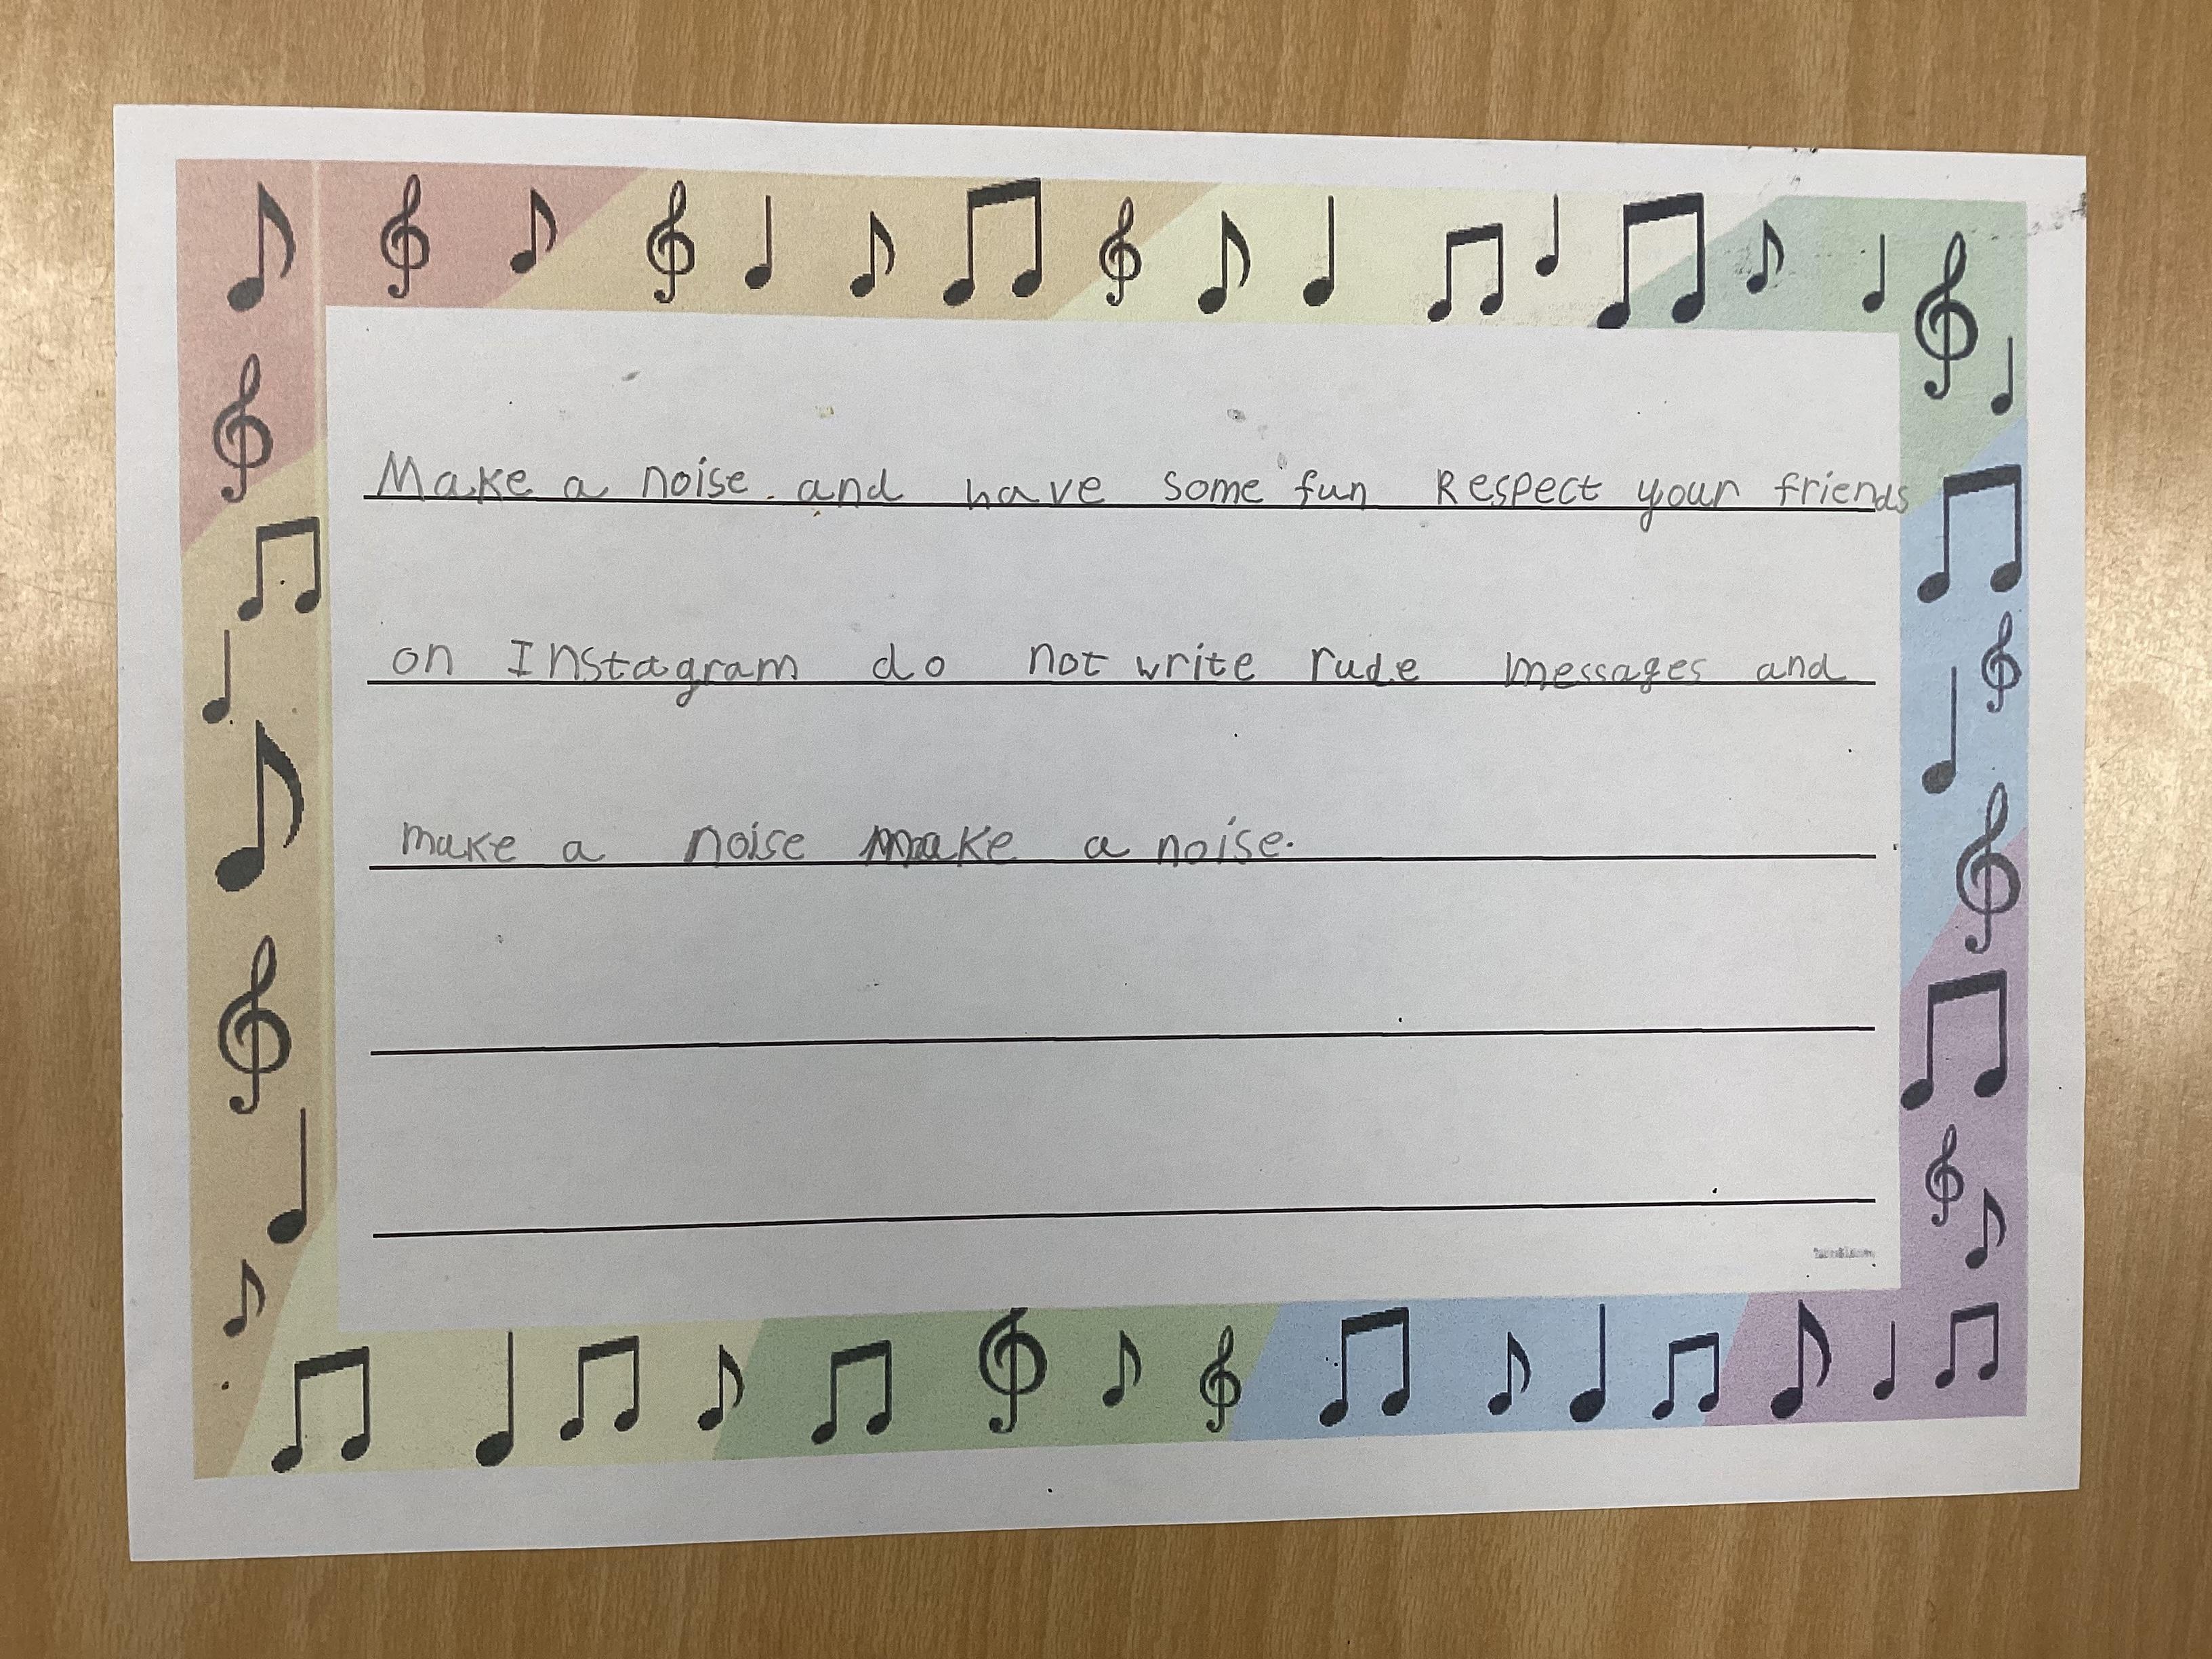 Make a noise. and have some fun Respect your friends
on Instagram do not write rude messages and
make a noise make a noise.